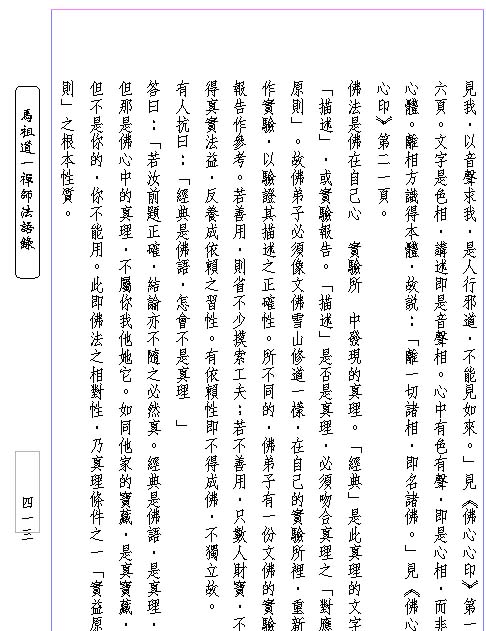 見我，以音聲求我，是人行邪道，不能見如來。」見《佛心心印》第一
六頁。文字是色相，講述即是音聲相。心中有色有聲，即是心相，而非
心體。離相方識得本體，故說：「離一切諸相，即名諸佛。」見《佛心
心印》第二一頁。
佛法是佛在自己心　實驗所　中發現的真理。「經典」是此真理的文字
「描述」，或實驗報告。「描述」是否是真理，必須吻合真理之「對應
原則」。故佛弟子必須像文佛雪山修道一樣，在自己的實驗所裡，重新
作實驗，以驗證其描述之正確性。所不同的，佛弟子有一份文佛的實驗
報告作參考。若善用，則省不少摸索工夫；若不善用，只數人財寶，不
得真實法益，反養成依賴之習性。有依賴性即不得成佛，不獨立故。
有人抗曰：「經典是佛語，怎會不是真理　」
答曰：「若汝前題正確，結論亦不隨之必然真。經典是佛語，是真理，
但那是佛心中的真理，不屬你我他她它。如同他家的寶藏，是真寶藏，
但不是你的，你不能用。此即佛法之相對性，乃真理條件之一「實益原
則」之根本性質。
馬祖道一禪師法語錄
四一三